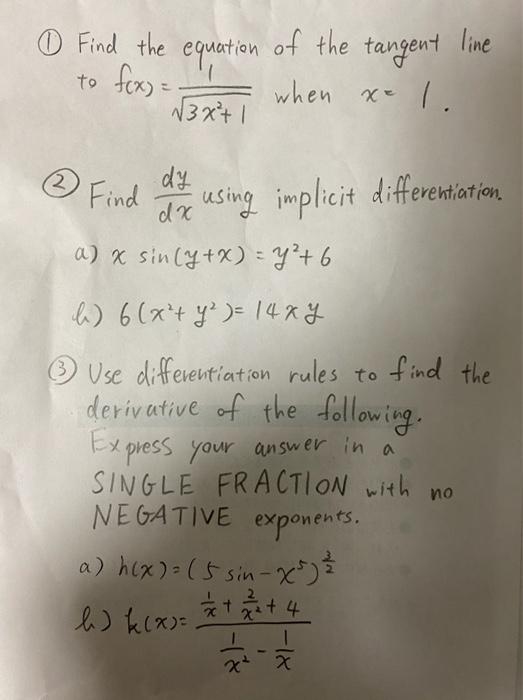 ① Find the equation of the tangent line
to f(x) = 1/√(3x²+1) when x = 1.
② Find dy/dx using implicit differentiation.
a) x sin(y+x) = y²+6
b) 6(x²+y²) = 14xy
③ Use differentiation rules to find the
derivative of the following.
Express your answer in a
SINGLE FRACTION with no
NEGATIVE exponents.
a) h(x) = (5 sin - x⁵)^(3/2)
b) k(x) = (1/x + 2/x² + 4)/(1/x² - 1/x)